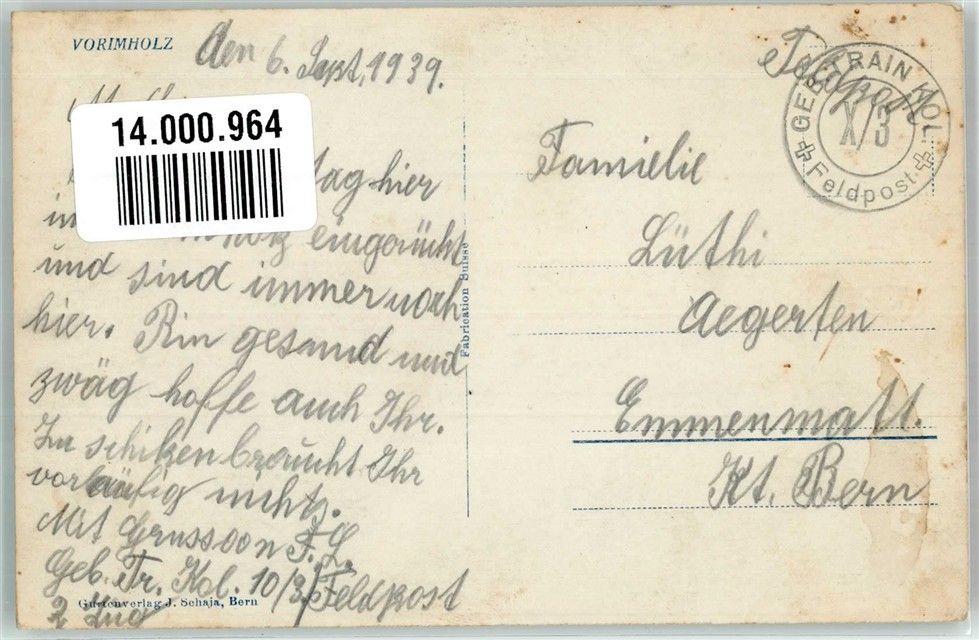 VORIMHOLZ
Den 6. Sept. 1939.
14.000.964
tag hier
eingerückt
und sind immer noch
hier. Bin gesund und
zwäg hoffe auch Ihr.
Zu schiken braucht Ihr
vorläufig nicht.
Mit Gruss F. L.
Geb. Tr. Kol. 10/3. Feldpost
2 Zug
Gurtenverlag J. Schaja, Bern
Fabrication Suisse
Feldpost
GEB. TRAIN KOL.
X/3
Feldpost
Famielie
Lüthi
Aegerten
Emmenmatt.
Kt. Bern